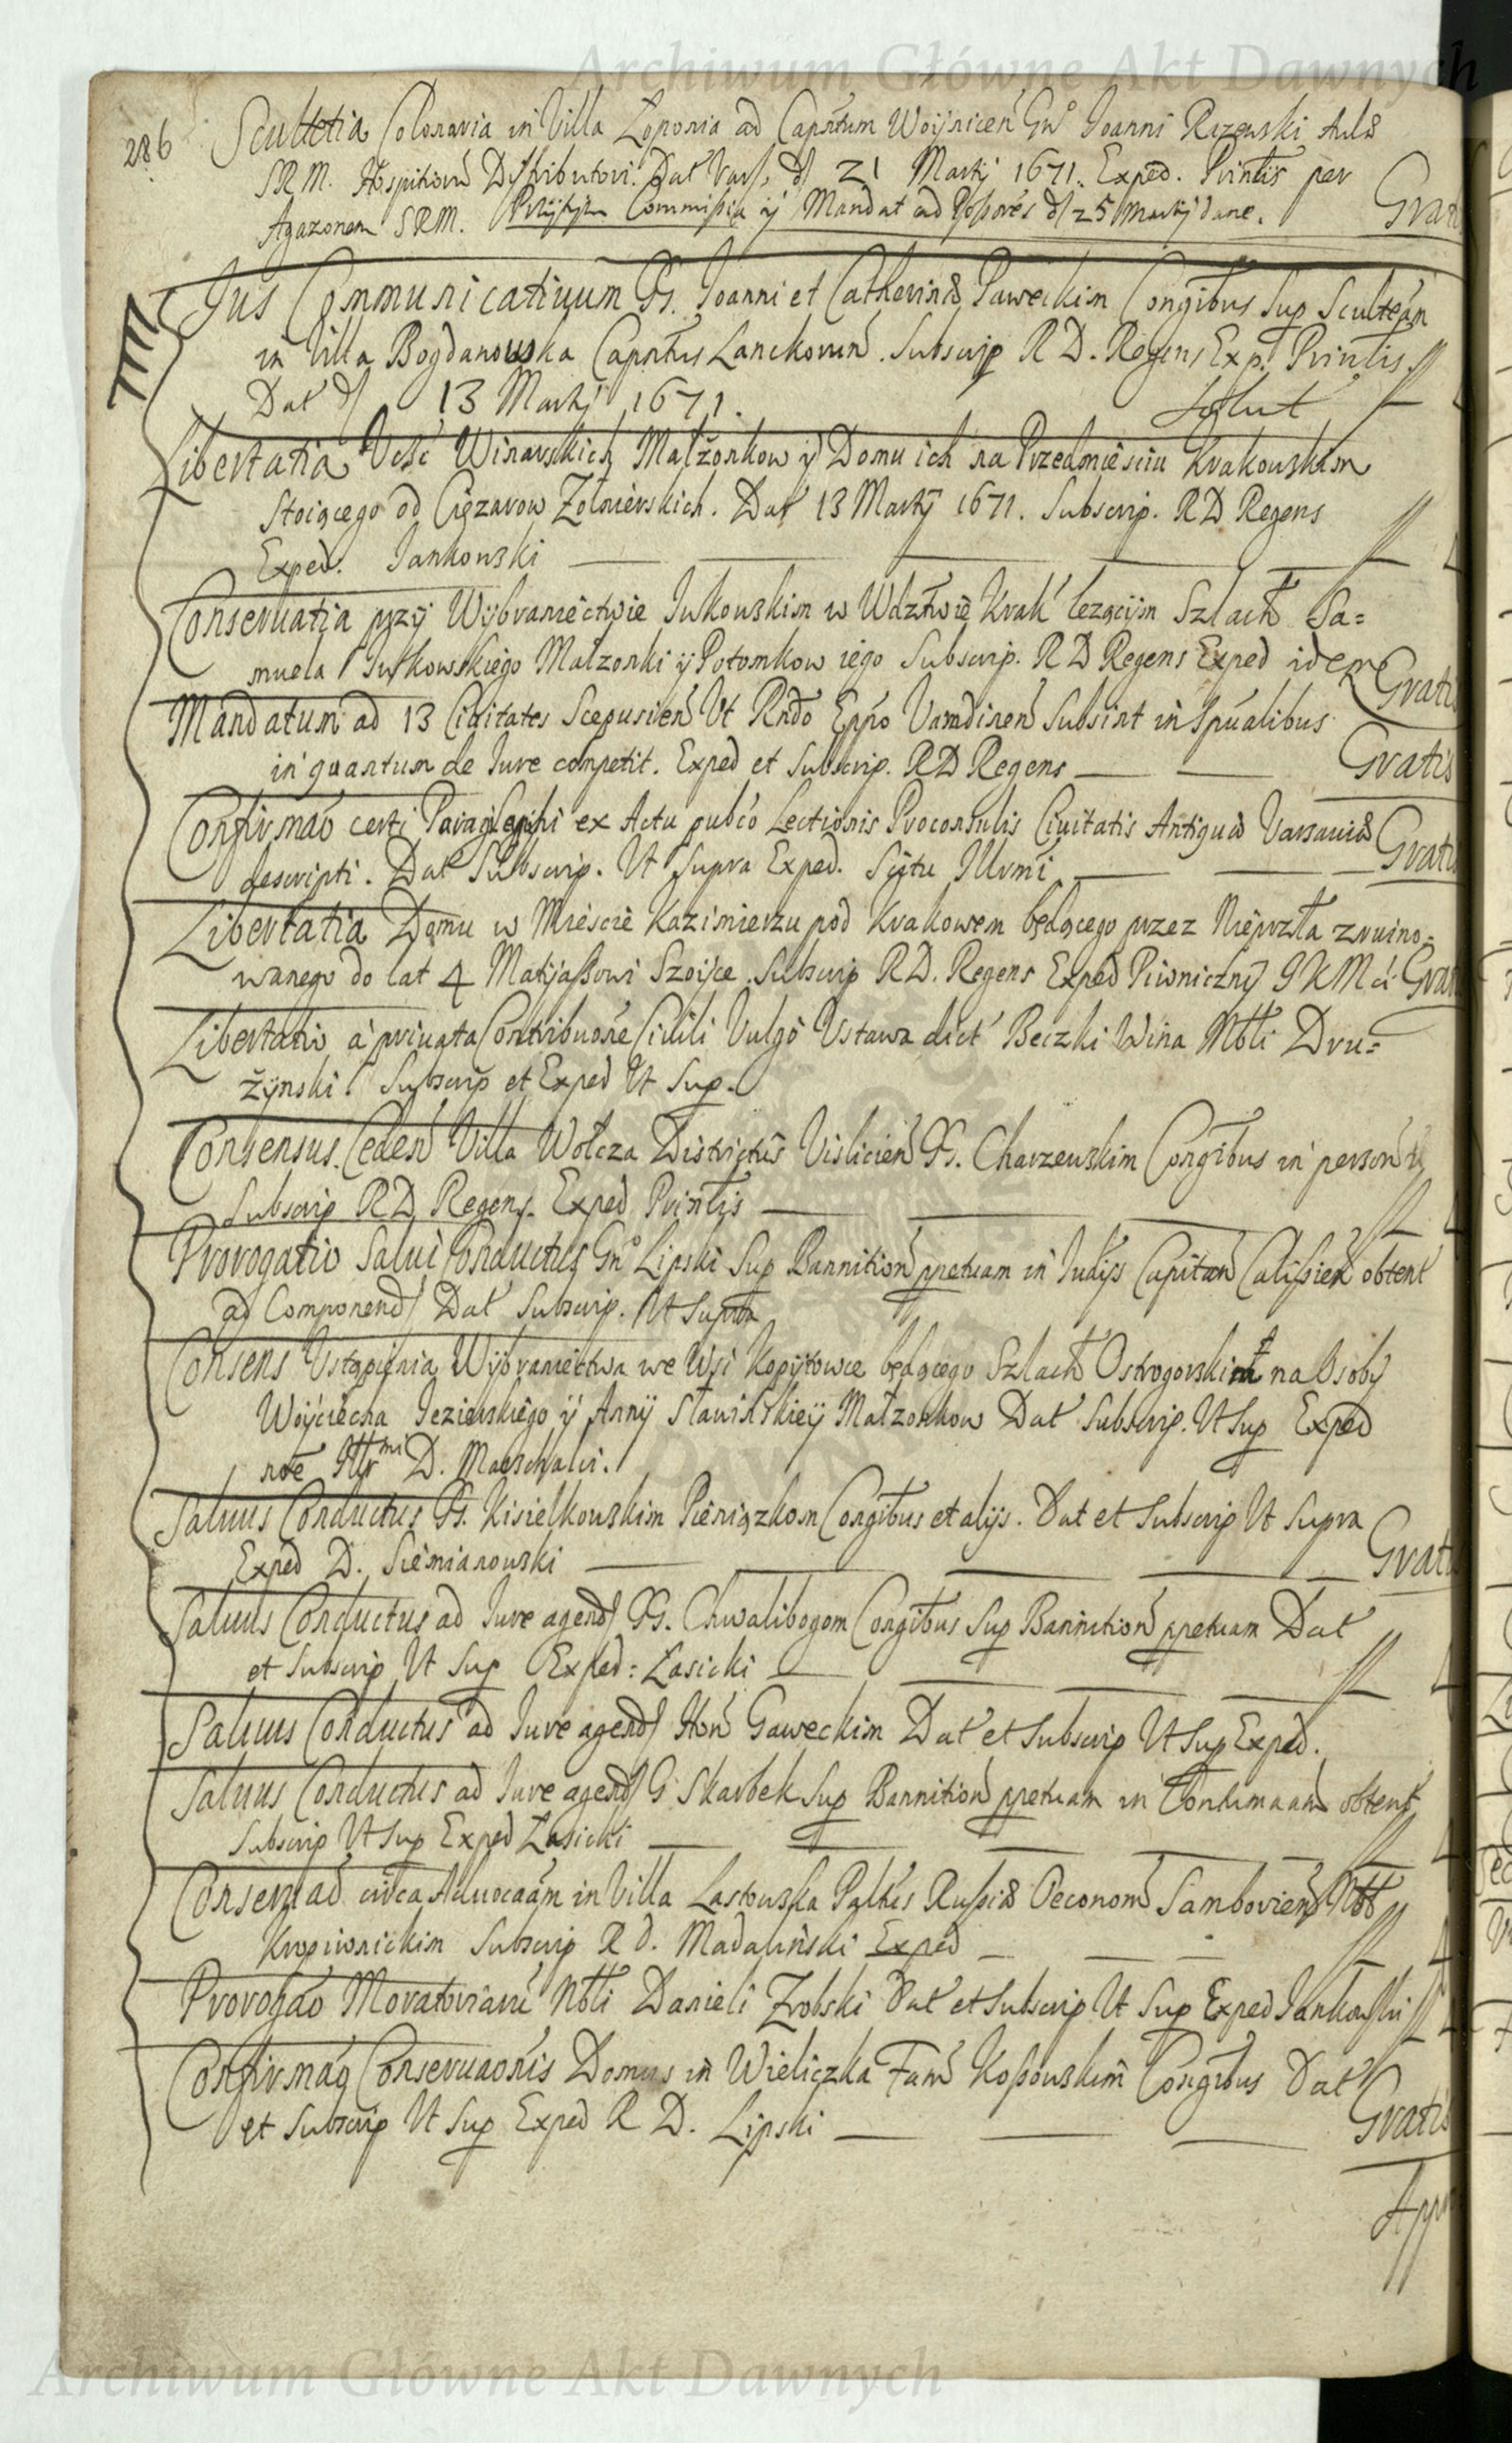 Archiwum Główne Akt Dawnych
286
Scultetia Colonaria in Villa Łoponia ad Capntum Woijnicen Gno Joanni Rzewski Aulæ
SRM. Hospitiorū Distributori. Dat Vars, d 21 Martij 1671. Exped. Printis per
Agazonem SRM. Przytym Commissia ij Mandat ad Possores d 25 Martij dane. Gra
Jus Communicativum GG. Joanni et Catherinæ Gaweckim Congibus Sup Scultetiam
in Villa Bogdanowka Capntus Lanckoronen. Subscrip RD. Regens Exp. Printis.
Dat d 13 Martij 1671. Solut
Libertatia Winarskich Małżonkow ij Domu ich na Przedmiesciu Krakowskim
Stoiącego od Ciężarow Żołnierskich. Dat 13 Martij 1671. Subscrip. RD Regens
Exped. Jankowski
Conservatia przij Wijbraniectwie Jukowskim w Wdztwie Krak leżącijm Szlach Sa=
muela Jurkowskiego Małzonki ij Potomkow iego Subscrip. RD Regens Exped idem Gratis
Mandatum ad 13 Civitates Scepusien Vt Rndo Eppo Varadinen Subsint in Spualibus
in quantum de Jure competit. Exped et Subscrip. RD Regens Gratis
Confirmao certi Paragraphi ex Actu pubco Lectionis Proconsulis Civitatis Antiquæ Varsaviæ
descripti. Dat Subscrip. Vt Supra Exped. Scitu Illrmi Gratis
Libertatia Domu w Miescie Kazimierzu pod Krakowem będącego przez Nieprzła zruino=
wanego do lat 4 Matijaszowi Szoijce. Subscrip RD. Regens Exped Piwniczny JKMci. Gra
Libertatio a privata Contribuone Civili Vulgo Ustawa dict Beczki Wina Nbli Dru=
żijnski. Subscrip et Exped Vt Sup.
Consensus Ceden Villa Wołcza Districtus Vislicien GG. Charzewskim Congibus in person
Subscrip RD Regens. Exped Printis
Prorogatio Salvi Conductus Gno Lipski Sup Bannition ppetuam in Judijs Capitan Calissien obtent
ad Componend Dat Subscrip. Vt Supra
Consens Ustąpienia Wijbraniectwa we Wsi Kopijtowce będącego Szlach Ostrogorskich na Osobij
Woijciecha Jezierskiego ij Annij Sławinskieij Małzonkow Dat Subscrip. Vt Sup Exped
noe Illrmi D. Marschalci.
Salvus Conductus GG. Kisielkowskim Pieniązkom Congibus et alijs. Dat et Subscrip Vt Supra
Exped D. Siemianowski Grat
Salvus Conductus ad Jure agend GG. Chwalibogom Congibus Sup Bannition ppetuam Dat
et Subscrip Vt Sup Exped: Łasicki
Salvus Conductus ad Jure agend Hon Gaweckim Dat et Subscrip Vt Sup Exped.
Salvus Conductus ad Jure agend G Skarbek Sup Bannition ppetuam in Contumaciam obtent
Subscrip Vt Sup Exped Łasicki
Consens ad circa Advocaam in Villa Lastowka Paltus Russiæ Oeconom Samborien Nbb
Kropiwnickim Subscrip R D. Madaliński Exped
Prorogao Moratoriarū Nbli Danieli Zrobski Dat et Subscrip Vt Sup Exped Jankowski
Confirmao Conservaonis Domus in Wieliczka Fam Kossowskim Congibus Dat
et Subscrip Vt Sup Exped R D. Lipski Gratis
App
Archiwum Główne Akt Dawnych